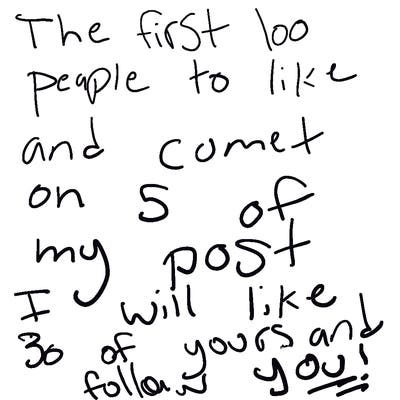 The first 100
people to like
and comet
on 5 of
my post
I will like
30 of yours and
follow you!